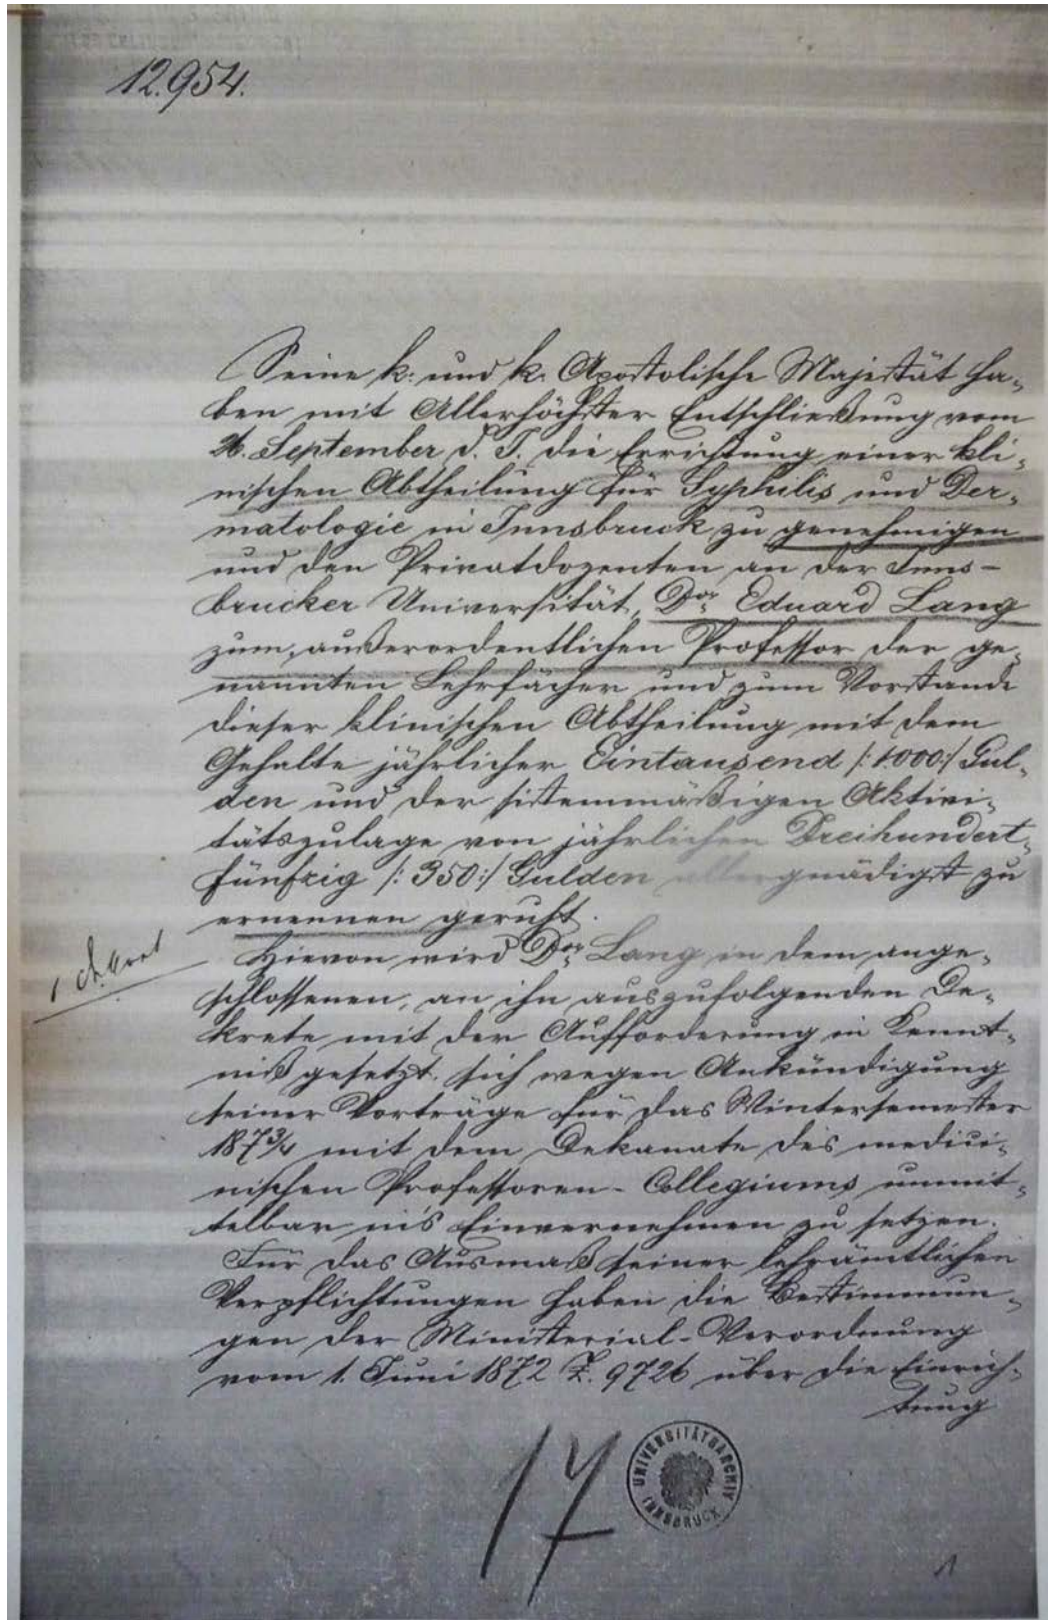 12.954.
Seine k: und k: Apostolische Majestät ha-
ben mit Allerhöchster Entschließung vom
26. September d. J. die Errichtung einer kli-
nischen Abtheilung für Syphilis und Der-
matologie in Innsbruck zu genehmigen
und den Privatdozenten an der Inns-
brucker Universität, Dor. Eduard Lang
zum außerordentlichen Professor der ge-
nannten Lehrfächer und zum Vorstande
dieser klinischen Abtheilung mit dem
Gehalte jährlicher Eintausend /:1000:/ Gul-
den und der sistemmäßigen Aktivi-
tätszulage von jährlichen Dreihundert-
fünfzig /:350:/ Gulden allergnädigst zu
ernennen geruht.
1
Hievon wird Dor. Lang in dem ange-
schlossenen, an ihn auszufolgenden De-
krete mit der Aufforderung in Kennt-
niß gesetzt, sich wegen Ankündigung
seiner Vorträge für das Wintersemester
1873/4 mit dem Dekanate des medizi-
nischen Professoren-Collegiums unmit-
telbar in's Einvernehmen zu setzen.
Für das Ausmaß seiner lehrämtlichen
Verpflichtungen haben die Bestimmun-
gen der Ministerial-Verordnung
vom 1. Juni 1872 Z. 9726 über die Einrich-
tung
17
UNIVERSITÄTSARCHIV
INNSBRUCK
1